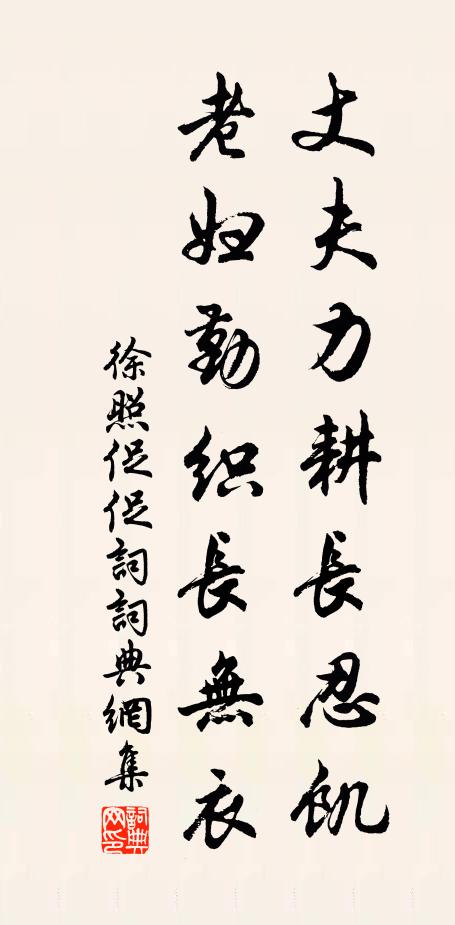 丈夫力耕長忍飢
老婦勤织長無衣
徐照促促詞詞典網集
詞典网印